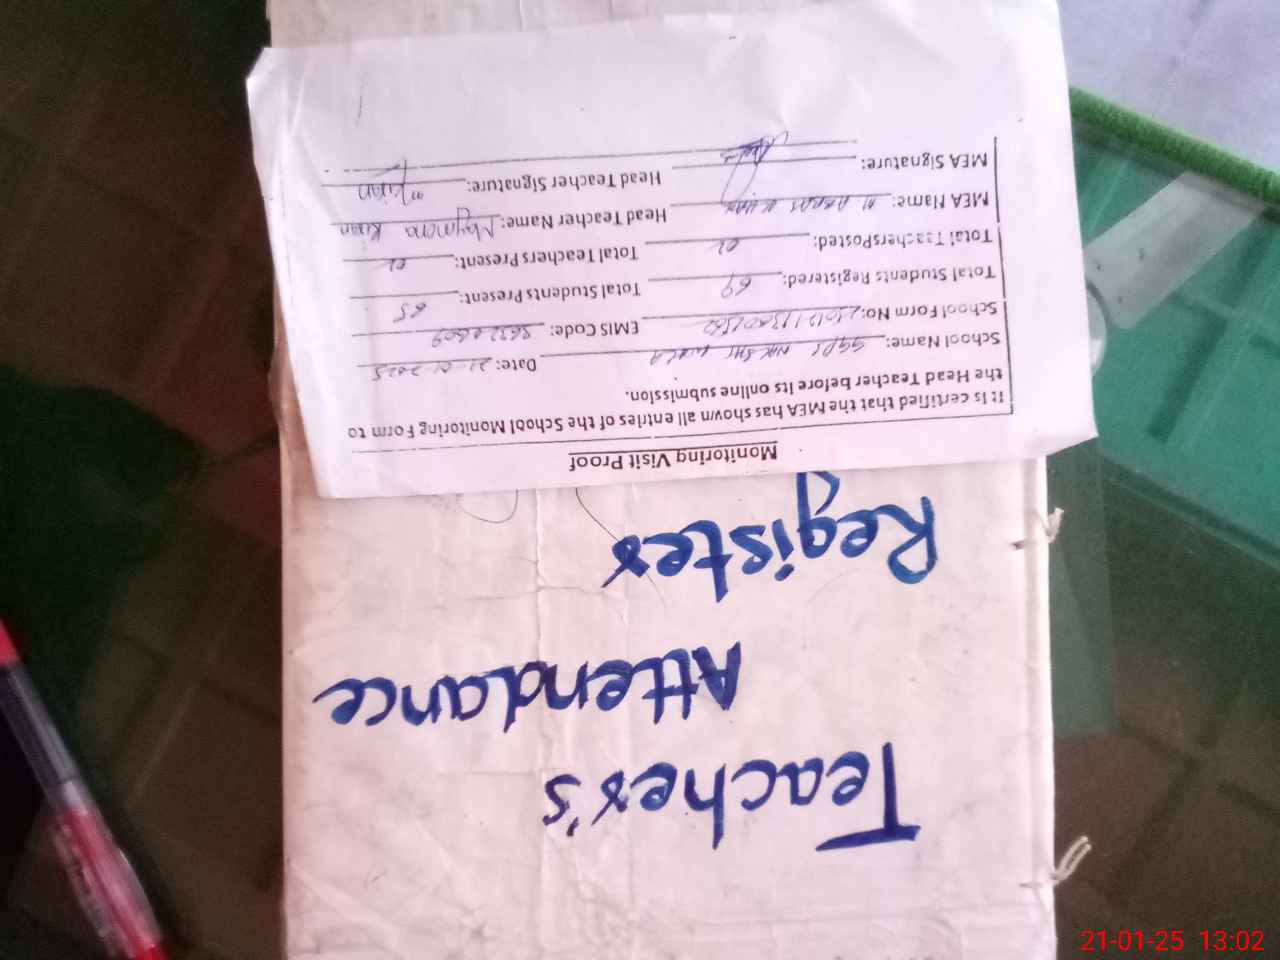 Teacher's
Attendance
Register
Monitoring Visit Proof
It is certified that the MEA has shown all entries of the School Monitoring Form to
the Head Teacher before its online submission.
School Name: GGPS Date: 21-01-2025
School Form No: EMIS Code:
Total Students Registered: 69 Total Students Present: 65
Total Teachers Posted: 02 Total Teachers Present: 02
MEA Name: Head Teacher Name: Maymona Kiran
MEA Signature: Head Teacher Signature: Kiran
21-01-25 13:02